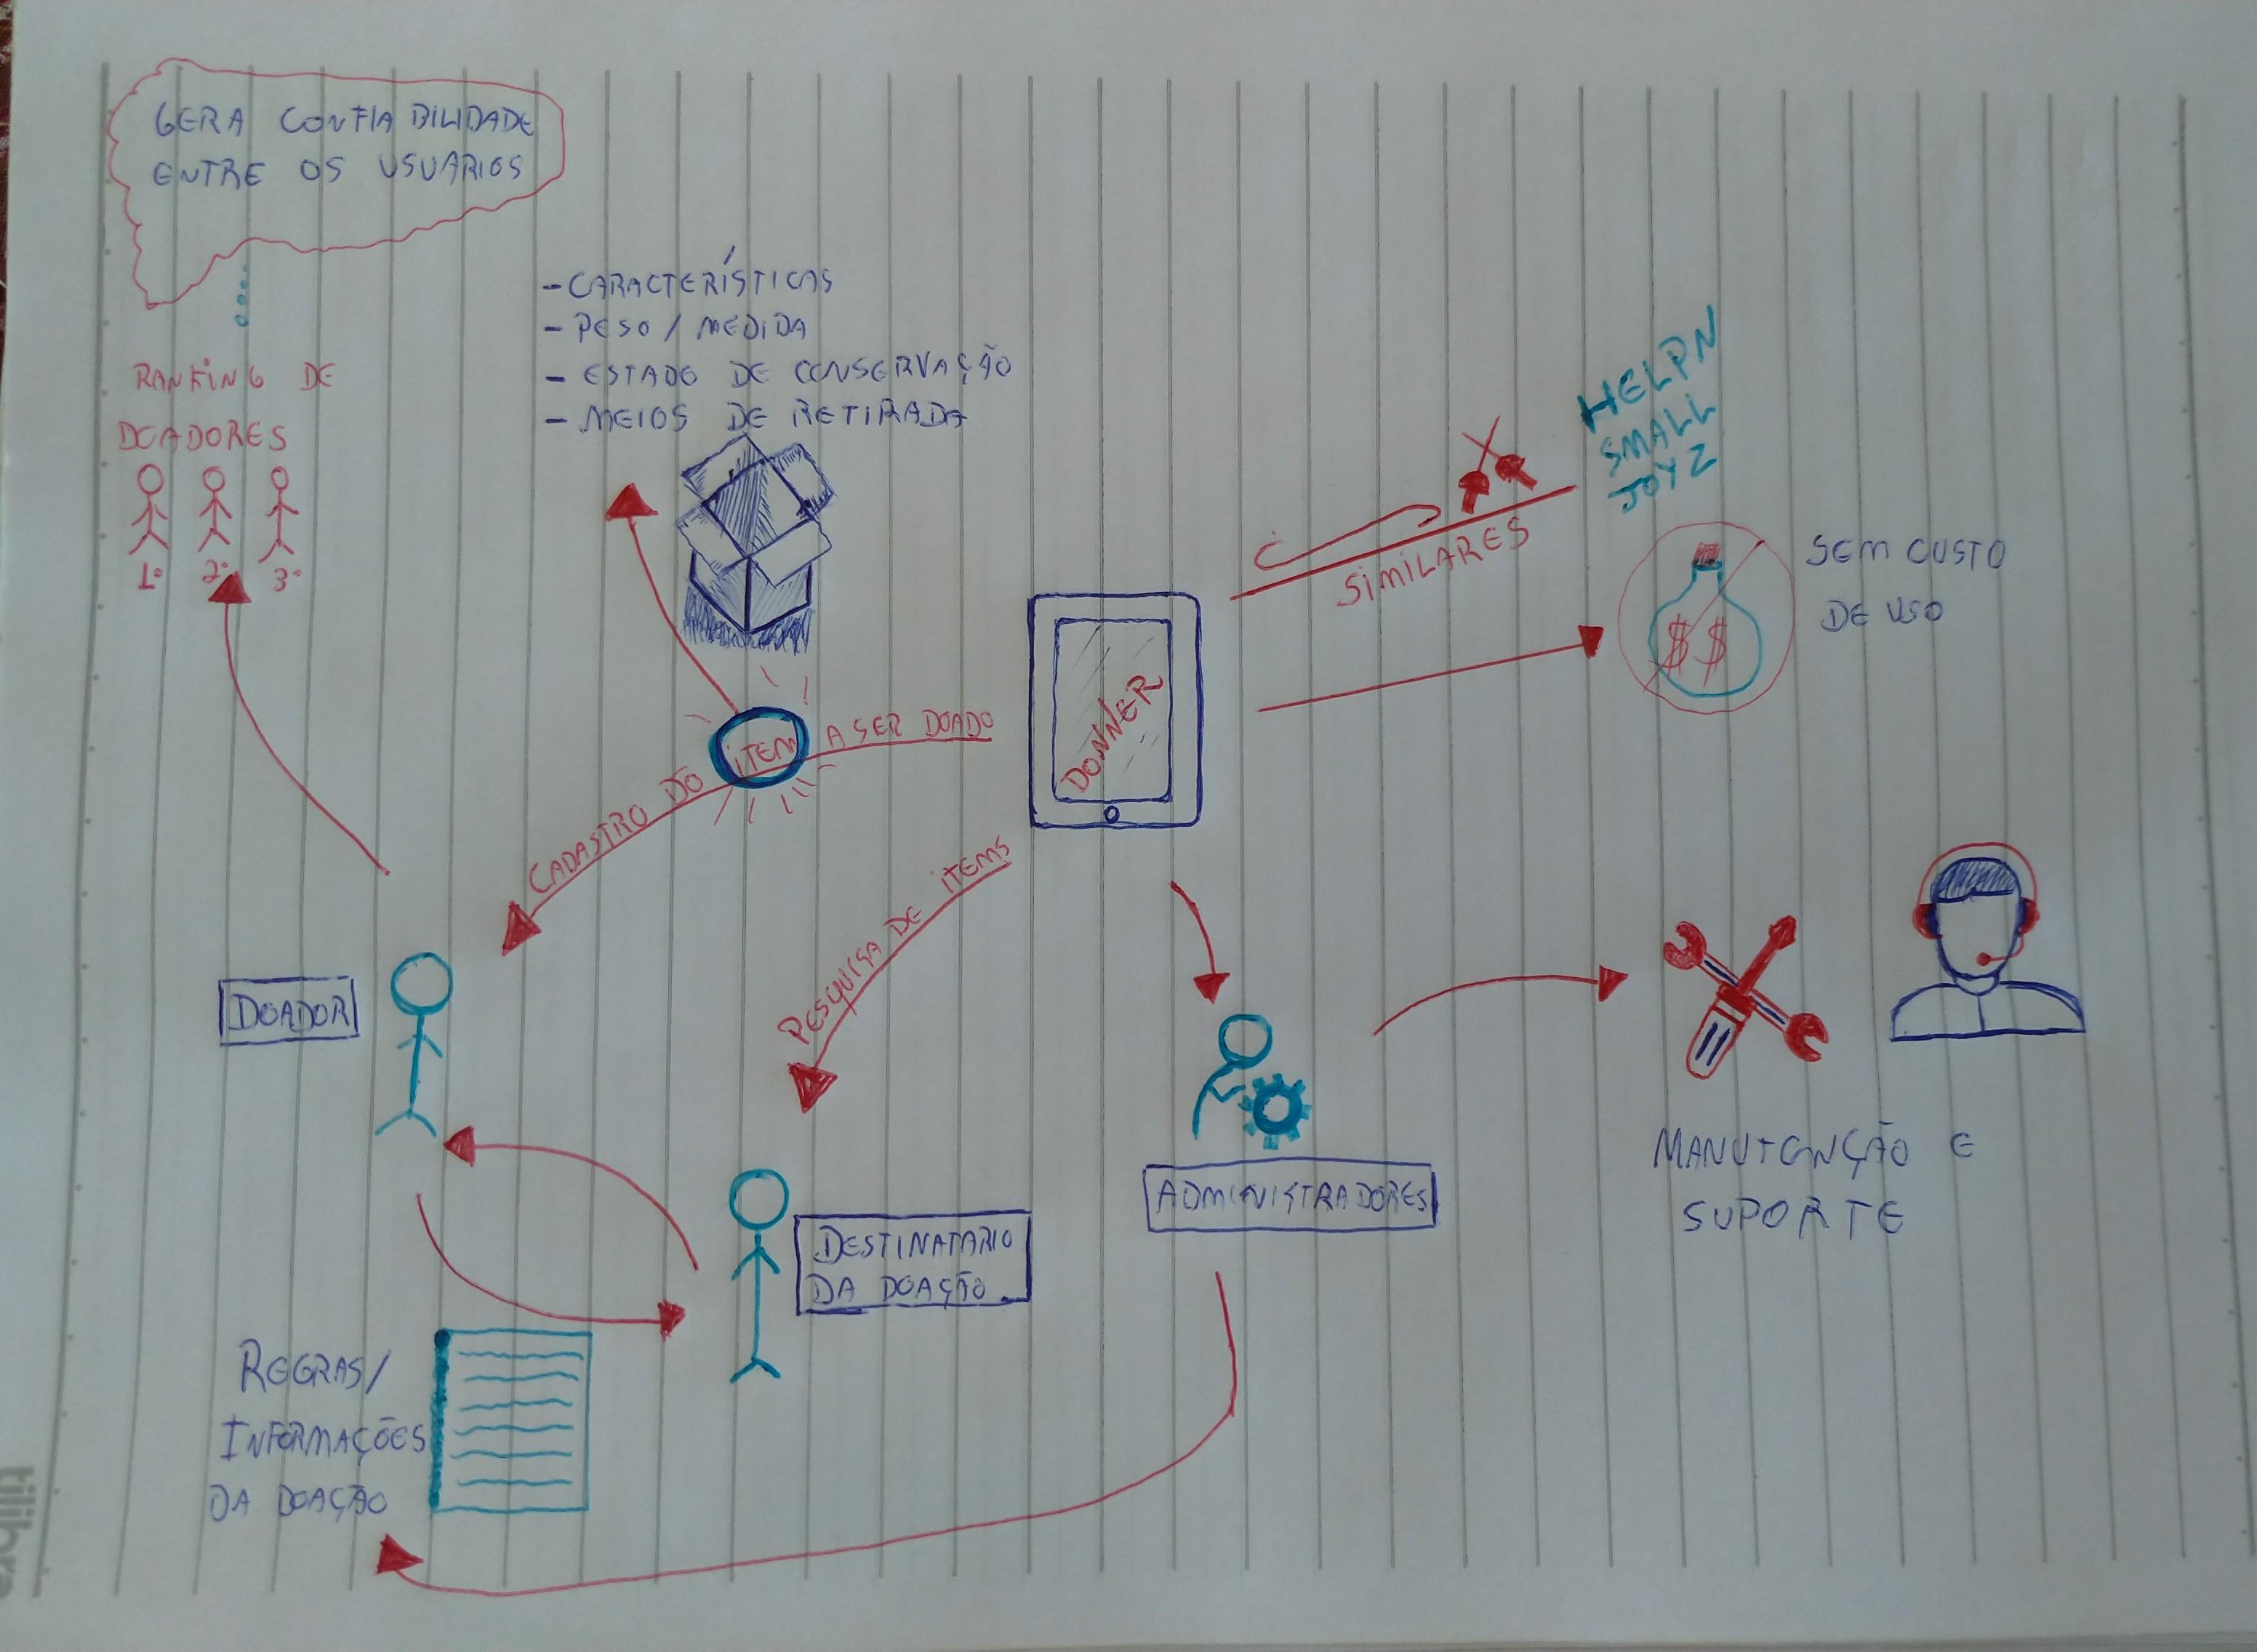 GERA CONFIABILIDADE
ENTRE OS USUARIOS
- CARACTERÍSTICAS
- PESO / MEDIDA
- ESTADO DE CONSERVAÇÃO
- MEIOS DE RETIRADA
RANKING DE
DOADORES
1º 2º 3º
HELPN
SMALL
JOYZ
SIMILARES
SEM CUSTO
DE USO
$ $
DONNER
CADASTRO DO ITEM A SER DOADO
PESQUISA DE ITEMS
DOADOR
DESTINATARIO
DA DOAÇÃO
ADMINISTRADORES
MANUTENÇÃO E
SUPORTE
REGRAS/
INFORMAÇÕES
DA DOAÇÃO
tilibra